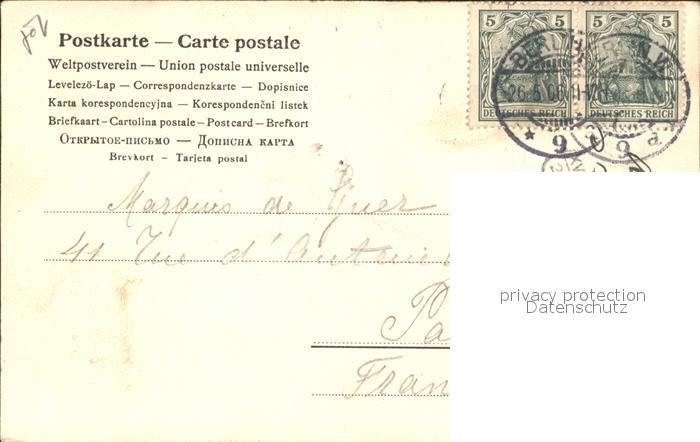 Postkarte — Carte postale
Weltpostverein — Union postale universelle
Levelező-Lap — Correspondenzkarte — Dopisnice
Karta korespondencyjna — Korespondenční listek
Briefkaart — Cartolina postale — Postcard — Brefkort
Открытое-письмо — Дописна карта
Brevkort — Tarjeta postal
5 5 5 5
BERLIN
26.5.06
DEUTSCHES REICH DEUTSCHES REICH
* 9 9 a
Marquis de
41 Rue d'
Pa
Fran
privacy protection
Datenschutz